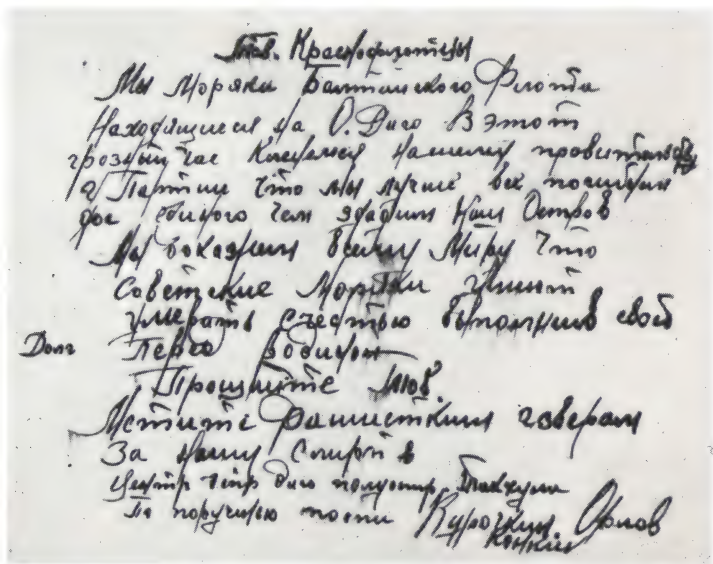 Тов. Краснофлотцы
Мы Моряки Балтийского Флота
Находящиеся на О. Даго В Этот
грозный час Клянемся Нашему правительству
и Партии Что мы лучше все погибнем
до единого чем здадим Наш Остров
Мы докажем Всему Миру Что
Советские Моряки умеют
умерать С честью выполнив свой
Долг Перед Родиной
Прощайте Тов.
Мстите Фашистким зверям
За Нашу Смерть
Даго полуостр. Тахкуна
По поручению
Курочкин Орлов
Конкин